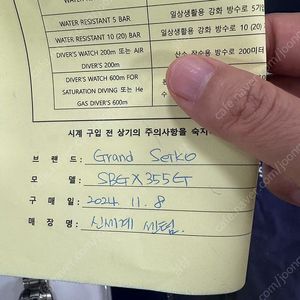 WATER RESISTANT 5 BAR
일상생활용 강화 방수로 5기압
WATER RESISTANT 10 (20) BAR
일상생활용 강화 방수로 10 (20)
DIVER'S WATCH 200m 또는 AIR
DIVER'S 200m
산소 잠수용 방수로 200미터
DIVER'S WATCH 600m FOR
SATURATION DIVING 또는 He
GAS DIVER'S 600m
시계 구입 전 상기의 주의사항을 숙지
브 랜 드 : Grand Seiko
모 델 : SBGX355G
구 매 일 : 2024. 11. 8
매 장 명 : 신세계 센텀.